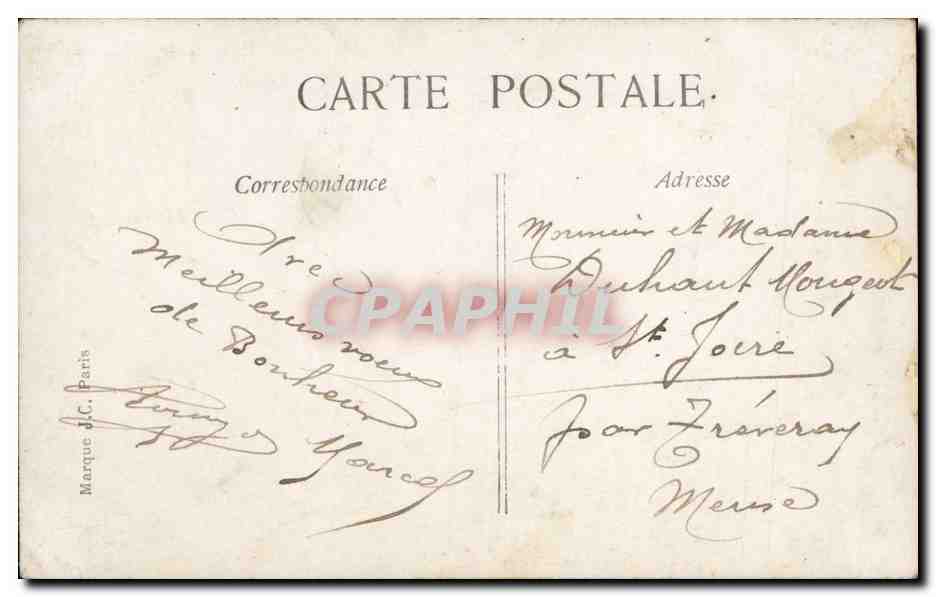 CARTE POSTALE.
Correspondance
Adresse
Meilleurs voeux
de Bonheur
Marcel
Monsieur et Madame
Duhaut Mougeot
à St. Joire
par Tréveray
Meuse
Marque J.C. Paris
CPAPHIL